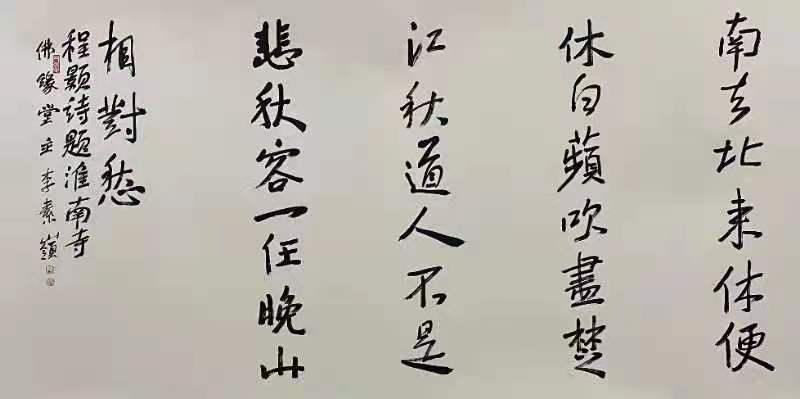 南去北来休便
休白蘋吹盡楚
江秋道人不是
悲秋客一任晚山
相對愁
程顥诗题淮南寺
佛緣堂主李素嶺